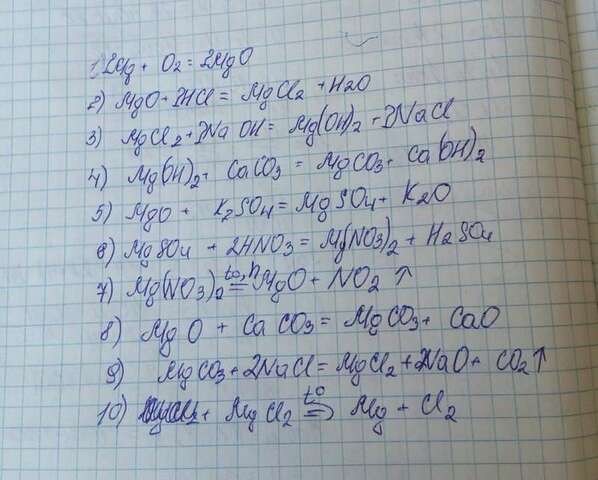 1) 2Mg + O2 = 2MgO
2) MgO + 2HCl = MgCl2 + H2O
3) MgCl2 + 2NaOH = Mg(OH)2 + 2NaCl
4) Mg(OH)2 + CaCO3 = MgCO3 + Ca(OH)2
5) MgO + K2SO4 = MgSO4 + K2O
6) MgSO4 + 2HNO3 = Mg(NO3)2 + H2SO4
7) Mg(NO3)2 = MgO + NO2 ↑
8) MgO + CaCO3 = MgCO3 + CaO
9) MgCO3 + 2NaCl = MgCl2 + 2NaO + CO2 ↑
10) MgCl2 = Mg + Cl2